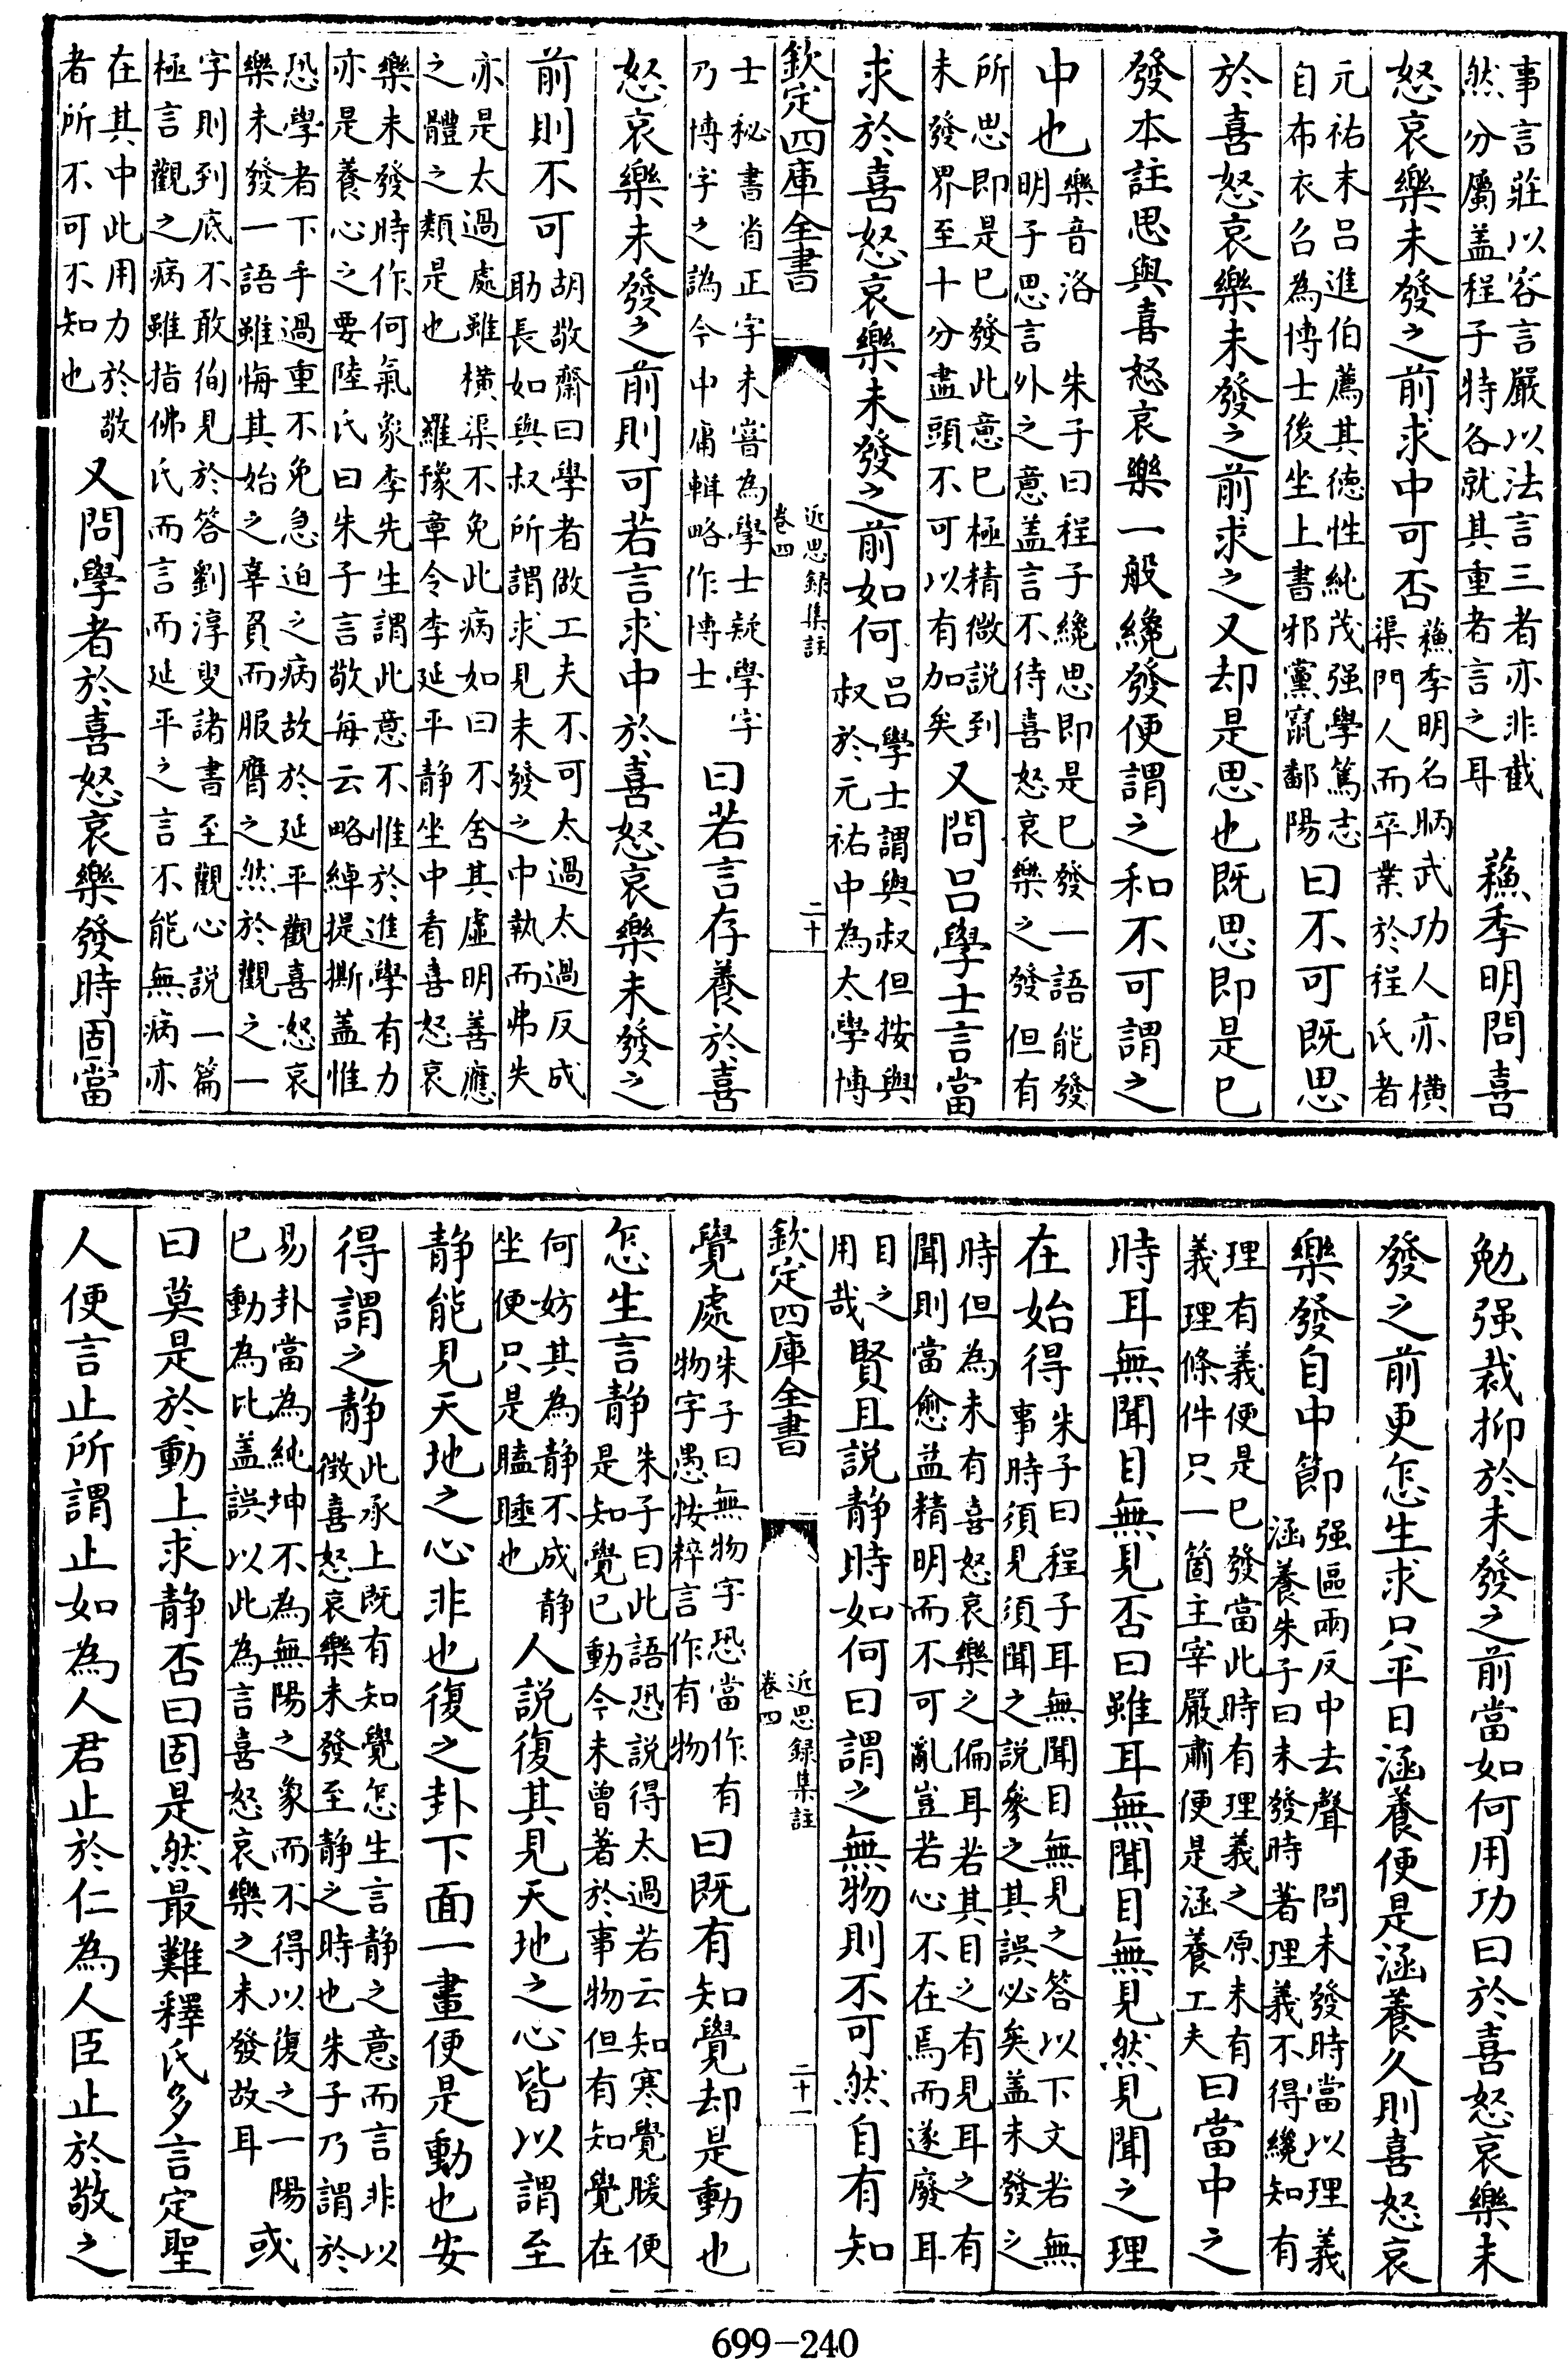 事言莊以容言嚴以法言三者亦非截
然分屬盖程子特各就其重者言之耳
蘇季明問喜
怒哀樂未發之前求中可否
蘇季明名昞武功人亦橫
渠門人而卒業於程氏者
元祐末吕進伯薦其德性純茂强學篤志
自布衣召為博士後坐上書邪黨竄鄱陽
曰不可既思
於喜怒哀樂未發之前求之又却是思也既思即是已
發本註思與喜怒哀樂一般纔發便謂之和不可謂之
中也
樂音洛 朱子曰程子纔思即是已發一語能發
明子思言外之意盖言不待喜怒哀樂之發但有
所思即是已發此意已極精微說到
未發界至十分盡頭不可以有加矣
又問吕學士言當
求於喜怒哀樂未發之前如何
吕學士謂與叔但按與
叔於元祐中為太學博
欽定四庫全書
近思録集註
卷四
二十
士秘書省正字未嘗為學士疑學字
乃博字之譌今中庸輯略作博士
曰若言存養於喜
怒哀樂未發之前則可若言求中於喜怒哀樂未發之
前則不可
胡敬齋曰學者做工夫不可太過太過反成
助長如與叔所謂求見未發之中執而弗失
亦是太過處雖橫渠不免此病如曰不舍其虛明善應
之體之類是也 羅豫章令李延平静坐中看喜怒哀
樂未發時作何氣象李先生謂此意不惟於進學有力
亦是養心之要陸氏曰朱子言敬每云略綽提撕盖惟
恐學者下手過重不免急迫之病故於延平觀喜怒哀
樂未發一語雖悔其始之辜負而服膺之然於觀之一
字則到底不敢徇見於答劉淳叟諸書至觀心說一篇
極言觀之病雖指佛氏而言而延平之言不能無病亦
在其中此用力於敬
者所不可不知也
又問學者於喜怒哀樂發時固當
勉强裁抑於未發之前當如何用功曰於喜怒哀樂未
發之前更怎生求只平日涵養便是涵養久則喜怒哀
樂發自中節
强區兩反中去聲 問未發時當以理義
涵養朱子曰未發時著理義不得纔知有
理有義便是已發當此時有理義之原未有
義理條件只一箇主宰嚴肅便是涵養工夫
曰當中之
時耳無聞目無見否曰雖耳無聞目無見然見聞之理
在始得
朱子曰程子耳無聞目無見之答以下文若無
事時須見須聞之說參之其誤必矣盖未發之
時但為未有喜怒哀樂之偏耳若其目之有見耳之有
聞則當愈益精明而不可亂豈若心不在焉而遂廢耳
目之
用哉
賢且說静時如何曰謂之無物則不可然自有知
欽定四庫全書
近思録集註
卷四
二十一
覺處
朱子曰無物字恐當作有
物字愚按粹言作有物
曰既有知覺却是動也
怎生言静
朱子曰此語恐說得太過若云知寒覺暖便
是知覺已動今未曾著於事物但有知覺在
何妨其為静不成静
坐便只是瞌睡也
人說復其見天地之心皆以謂至
静能見天地之心非也復之卦下面一畫便是動也安
得謂之静
此承上既有知覺怎生言静之意而言非以
徵喜怒哀樂未發至静之時也朱子乃謂於
易卦當為純坤不為無陽之象而不得以復之一陽
已動為比盖誤以此為言喜怒哀樂之未發故耳
或
曰莫是於動上求静否曰固是然最難釋氏多言定聖
人便言止所謂止如為人君止於仁為人臣止於敬之
699-240